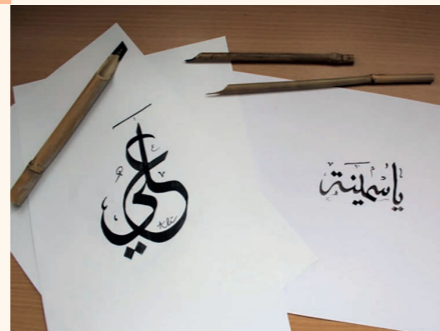 علي
ياسمينة